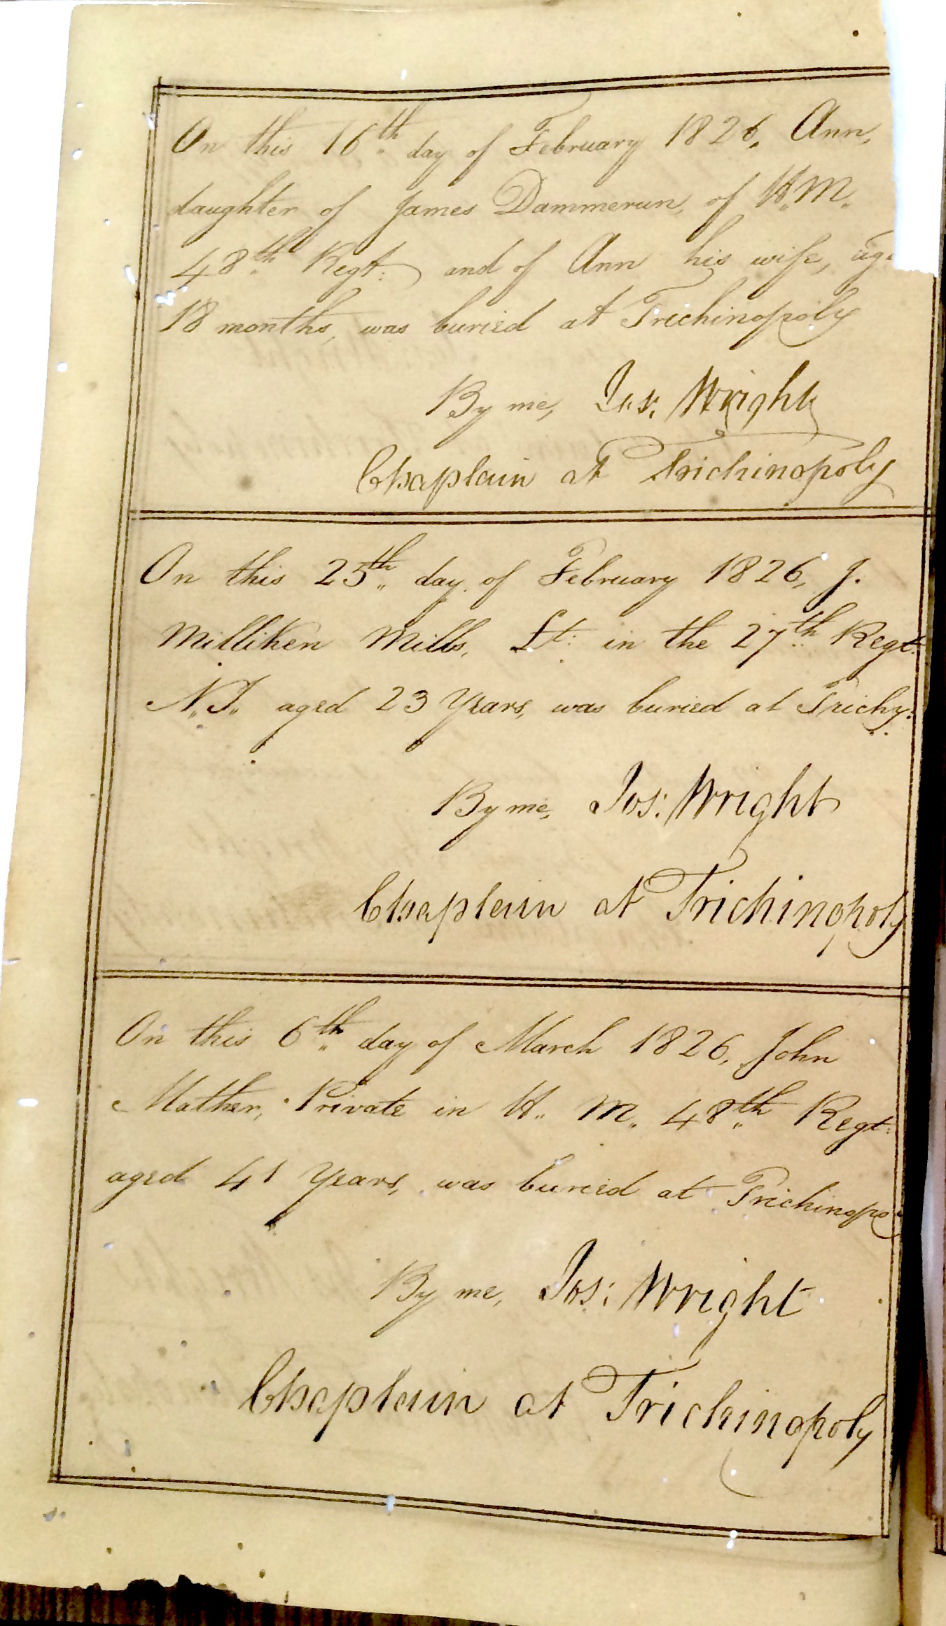 On this 16th day of February 1826, Ann,
daughter of James Dammerun, of H.M.
48th Regt: and of Ann his wife, ag
18 months, was buried at Trichinopoly
By me, Jos: Wright
Chaplain at Trichinopoly
On this 25th day of February 1826, J.
Milliken Mills, Lt: in the 27th Regt:
N.I. aged 23 Years, was buried at Trichy:
By me, Jos: Wright
Chaplain at Trichinopoly
On this 6th day of March 1826, John
Mather, Private in H. M. 48th Regt:
aged 41 Years, was buried at Trichinopo
By me, Jos: Wright
Chaplain at Trichinopoly